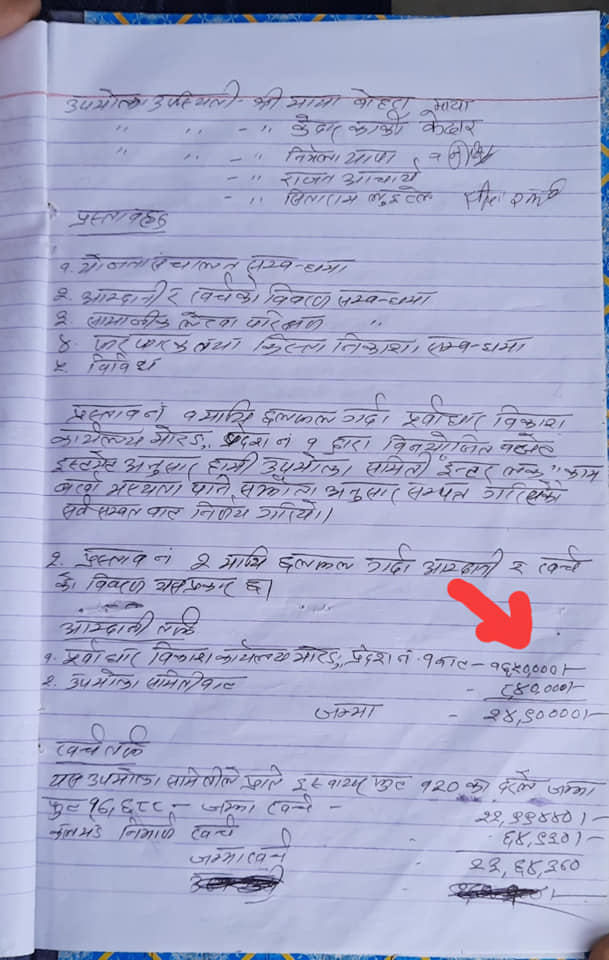 उपभोक्ता उपस्थिती - श्री माया बोहरा माया
" " - " केदार कार्की केदार
" " - " निर्मला थापा
- " राजन आचार्य
- " सिताराम
प्रस्तावहरु
१. योजना संचालन सम्बन्धमा
२. आम्दानी र खर्चको विवरण सम्बन्धमा
३. सामाजीक लेखा परिक्षण "
४. फरफारक तथा किस्ता निकाशा सम्बन्धमा
५. विविध
प्रस्ताव नं १ माथि छलफल गर्दा पूर्वाधार विकाश
कार्यलय मोरङ, प्रदेश नं १ द्वारा विनयोजित बजेट
इस्टमेट अनुसार हामी उपभोक्ता समिती इन्टर लक काम
अनुसार सम्पन्न गरिएको
सर्व सम्मत बाट निर्णय गरियो।
२. प्रस्ताव नं २ माथि छलफल गर्दा आम्दानी र खर्च
को विवरण यसप्रकार छ।
आम्दानी तर्फ
१. पूर्वाधार विकाश कार्यलय मोरङ, प्रदेश नं. १ बाट - १६५०,०००।-
२. उपभोक्ता समितीबाट - ८४०,०००।-
जम्मा - २४,९००००।-
खर्च तर्फ
यस उपभोक्ता समितीले प्रति इस्क्वायर फुट १२० का दरले जम्मा
फुट १९,६८८ - जम्मा खर्च - २२,९९४४०।-
निर्माण खर्च - ६४,९२०।-
जम्मा खर्च - २३,६४,३६०